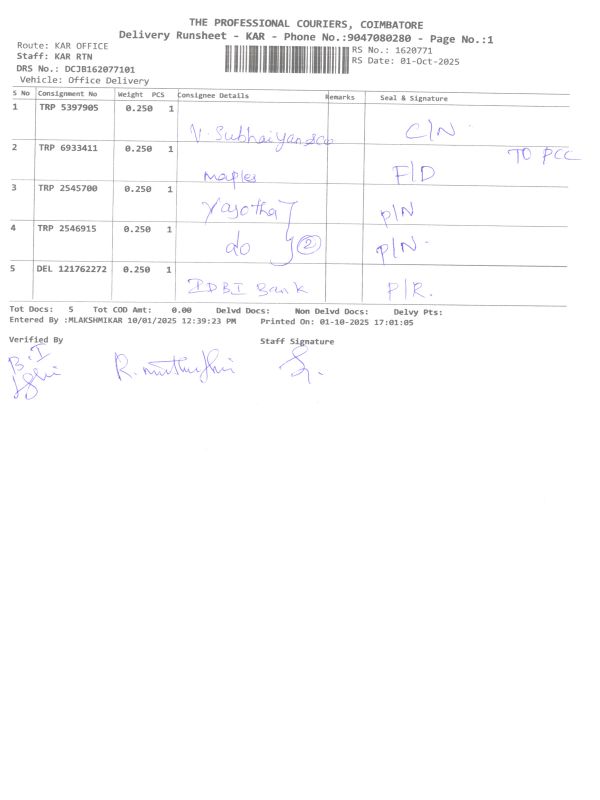 THE PROFESSIONAL COURIERS, COIMBATORE
Delivery Runsheet - KAR - Phone No.:9047080280 - Page No.:1
Route: KAR OFFICE
RS No.: 1620771
Staff: KAR RTN
RS Date: 01-Oct-2025
DRS No.: DCJB162077101
Vehicle: Office Delivery
S No Consignment No Weight PCS Consignee Details Remarks Seal & Signature
1 TRP 5397905 0.250 1 C/N
2 TRP 6933411 0.250 1 Maples F/D TO PCC
3 TRP 2545700 0.250 1 P/N
4 TRP 2546915 0.250 1 do 2 P/N
5 DEL 121762272 0.250 1 IDBI Bank P/R.
Tot Docs: 5 Tot COD Amt: 0.00 Delvd Docs: Non Delvd Docs: Delvy Pts:
Entered By :MLAKSHMIKAR 10/01/2025 12:39:23 PM Printed On: 01-10-2025 17:01:05
Verified By
Staff Signature